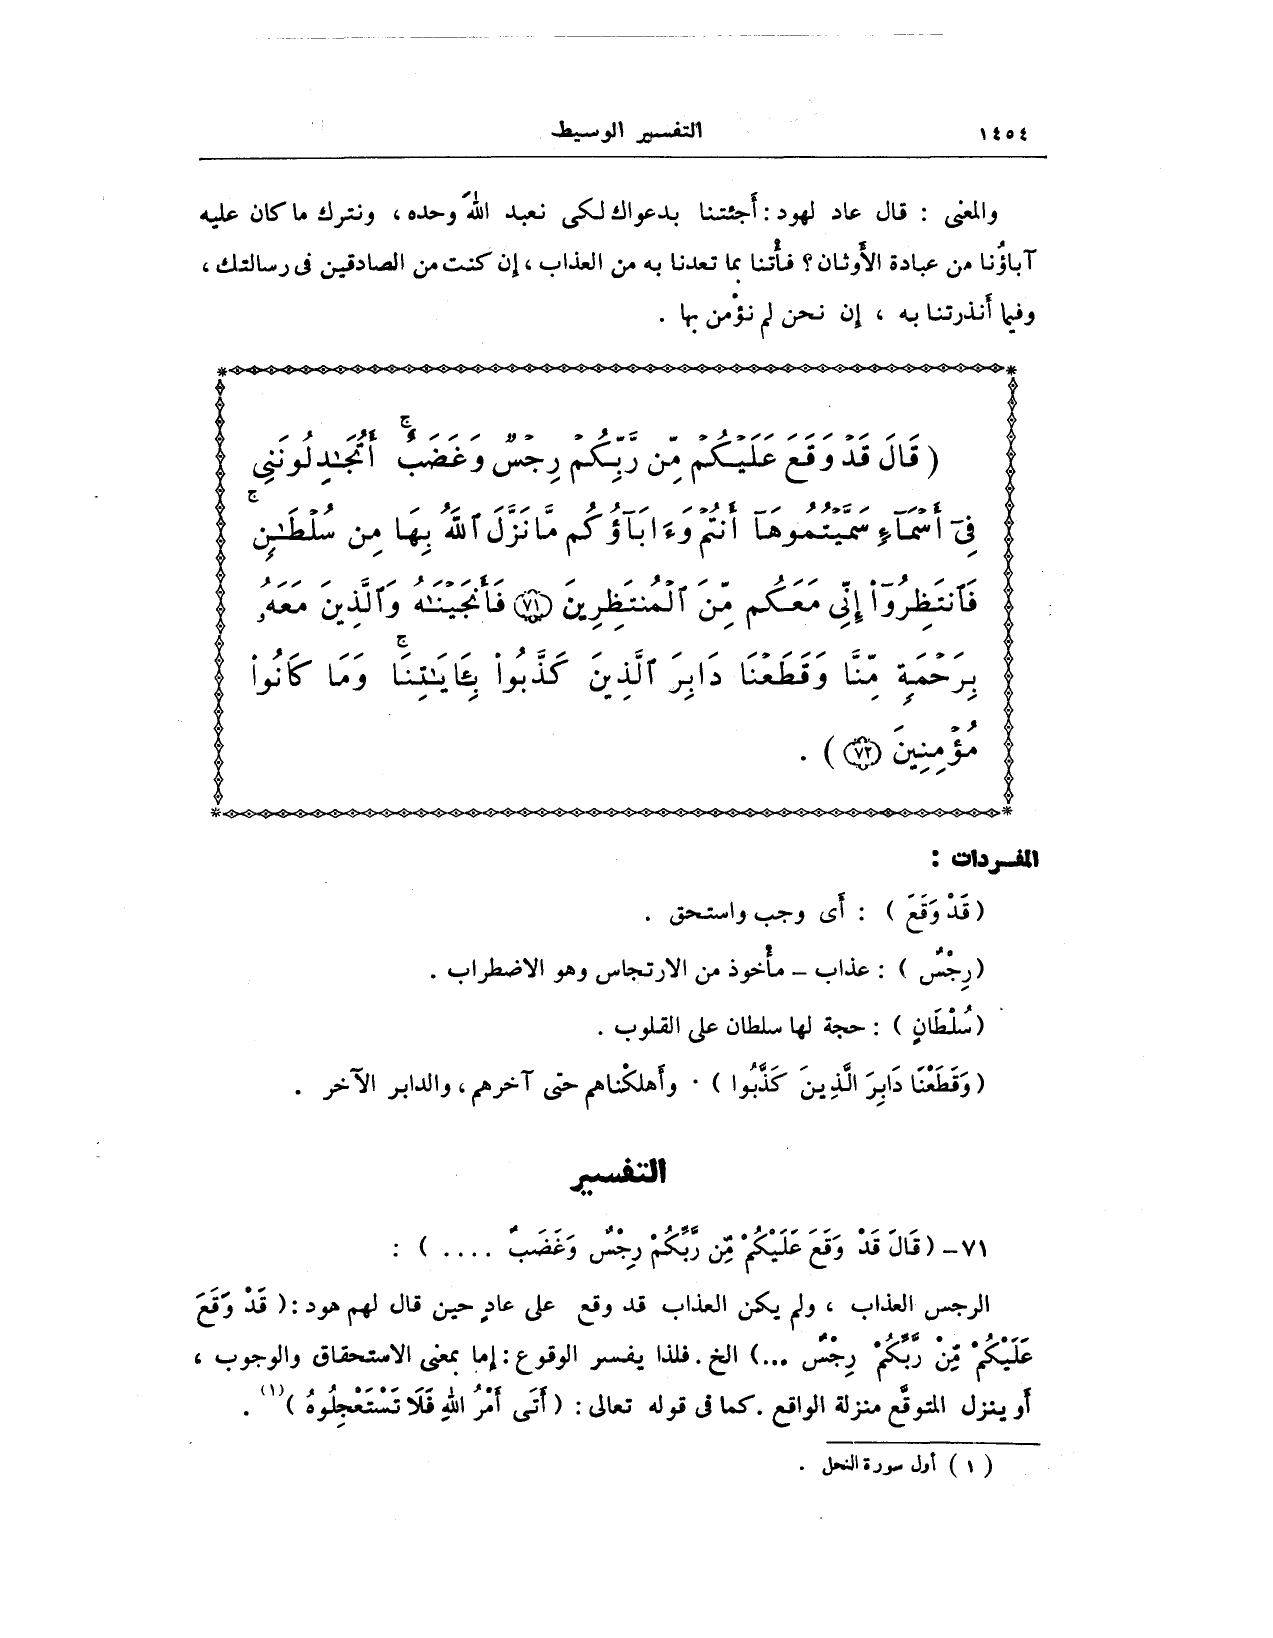 ١٤٥٤
التفسير الوسيط
والمعنى : قال عاد لهود : أَجئتنا بدعواك لكى نعبد اللهَ وحده ، ونترك ما كان عليه
آباؤُنا من عبادة الأَوثان ؟ فأْتنا بما تعدنا به من العذاب ، إن كنت من الصادقين فى رسالتك ،
وفيما أَنذرتنا به ، إن نحن لم نؤْمن بها .
( قَالَ قَدْ وَقَعَ عَلَيْكُم مِّن رَّبِّكُمْ رِجْسٌ وَغَضَبٌ ۖ أَتُجَـٰدِلُونَنِى
فِىٓ أَسْمَآءٍ سَمَّيْتُمُوهَآ أَنتُمْ وَءَابَآؤُكُم مَّا نَزَّلَ ٱللَّهُ بِهَا مِن سُلْطَـٰنٍ ۚ
فَٱنتَظِرُوٓا۟ إِنِّى مَعَكُم مِّنَ ٱلْمُنتَظِرِينَ ﴿٧١﴾ فَأَنجَيْنَـٰهُ وَٱلَّذِينَ مَعَهُۥ
بِرَحْمَةٍ مِّنَّا وَقَطَعْنَا دَابِرَ ٱلَّذِينَ كَذَّبُوا۟ بِـَٔايَـٰتِنَا ۖ وَمَا كَانُوا۟
مُؤْمِنِينَ ﴿٧٢﴾ ) .
المفـردات :
( قَدْ وَقَعَ ) : أَى وجب واستحق .
( رِجْسٌ ) : عذاب – مأْخوذ من الارتجاس وهو الاضطراب .
( سُلْطَانٍ ) : حجة لها سلطان على القلوب .
( وَقَطَعْنَا دَابِرَ الَّذِينَ كَذَّبُوا ) · وأَهلكْناهم حتى آخرهم ، والدابر الآخر .
التفسير
٧١– ( قَالَ قَدْ وَقَعَ عَلَيْكُمْ مِّن رَّبِّكُمْ رِجْسٌ وَغَضَبٌ .... ) :
الرجس العذاب ، ولم يكن العذاب قد وقع على عادٍ حين قال لهم هود : ( قَدْ وَقَعَ
عَلَيْكُمْ مِّنْ رَّبِّكُمْ رِجْسٌ ...) الخ . فلذا يفسر الوقوع : إما بمعنى الاستحقاق والوجوب ،
أَو ينزل المتوقَّع منزلة الواقع . كما فى قوله تعالى : ( أَتَى أَمْرُ اللهِ فَلَا تَسْتَعْجِلُوهُ )(١) .
( ١ ) أول سورة النحل .